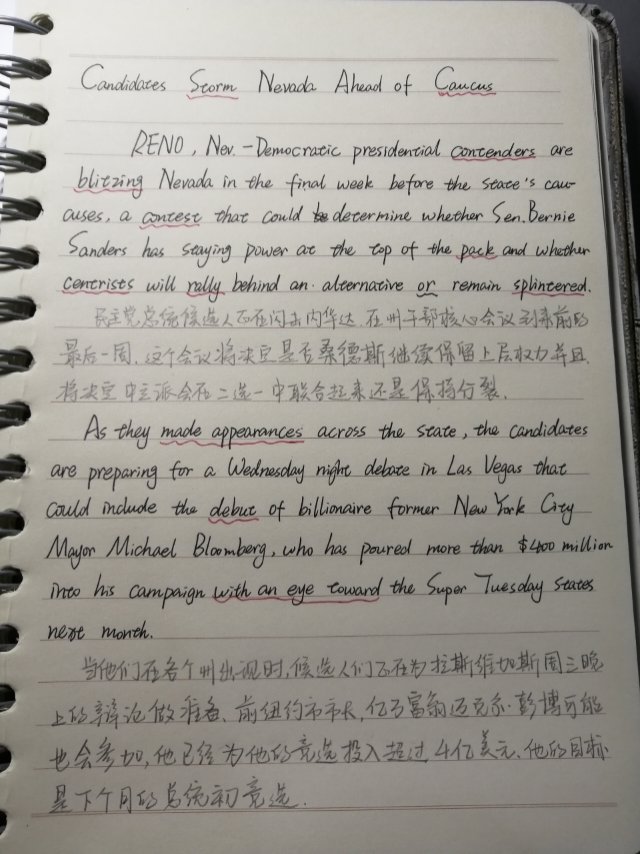 Candidates Storm Nevada Ahead of Caucus
RENO, Nev. - Democratic presidential contenders are
blitzing Nevada in the final week before the state's cau-
cuses, a contest that could determine whether Sen. Bernie
Sanders has staying power at the top of the pack and whether
centrists will rally behind an alternative or remain splintered.
民主党总统候选人正在闪击内华达,在州干部核心会议到来前的
最后一周,这个会议将决定是否桑德斯继续保留上层权力并且
将决定中立派会在二选一中联合起来还是保持分裂.
As they made appearances across the state, the candidates
are preparing for a Wednesday night debate in Las Vegas that
could include the debut of billionaire former New York City
Mayor Michael Bloomberg, who has poured more than $400 million
into his campaign with an eye toward the Super Tuesday states
next month.
当他们在各个州出现时,候选人们正在为拉斯维加斯周三晚
上的辩论做准备、前纽约市市长,亿万富翁迈克尔·彭博可能
也会参加,他已经为他的竞选投入超过4亿美元、他的目标
是下个月的总统初竞选.